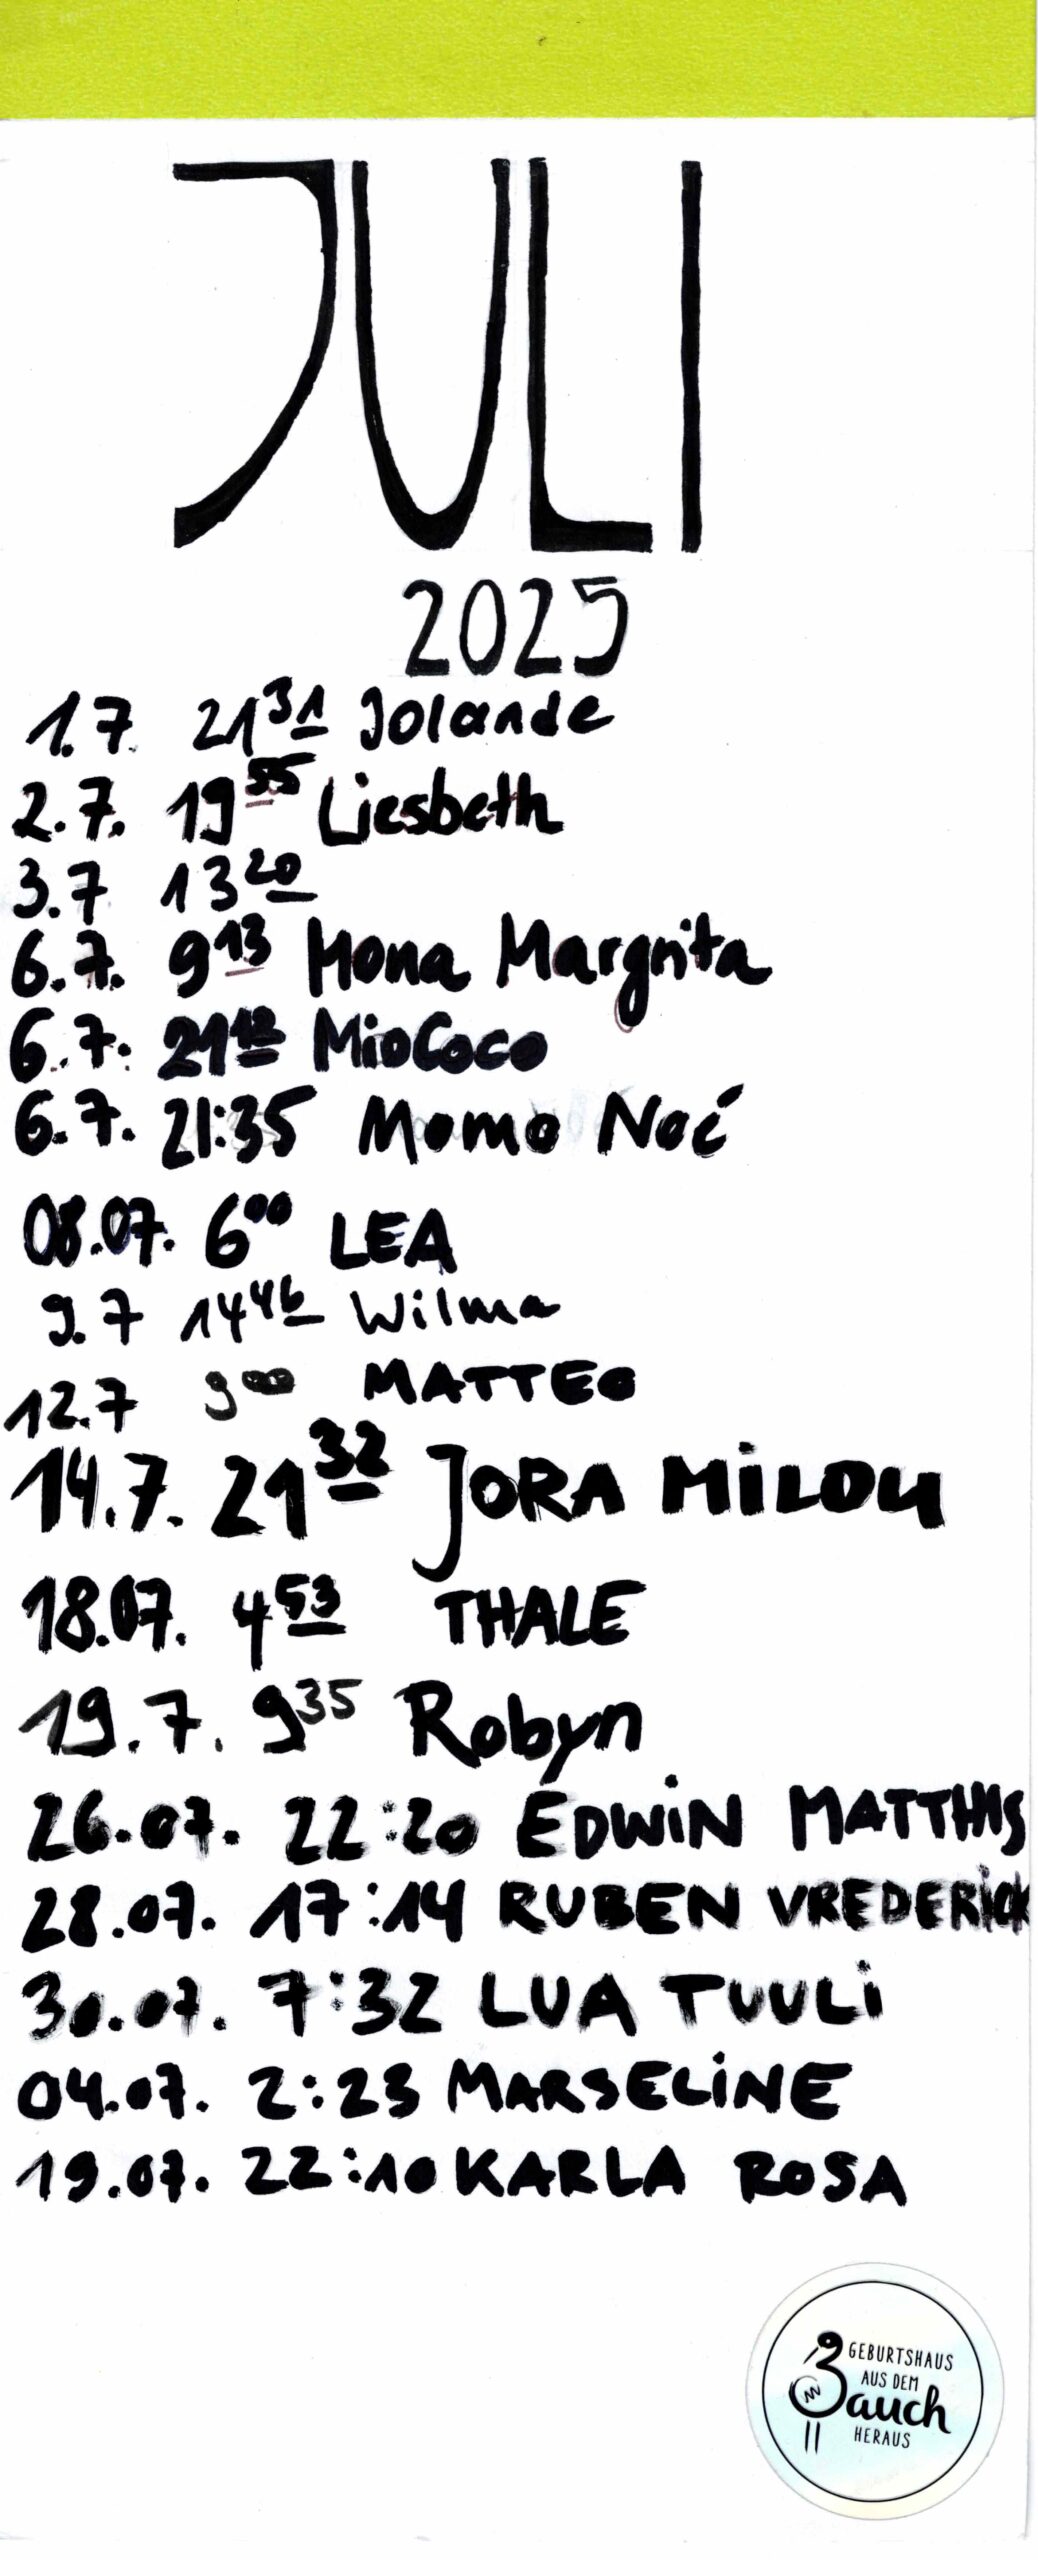 JULI
2025
1.7. 21 31 Jolande
2.7. 19 55 Liesbeth
3.7 13 20
6.7. 9 13 Mona Margrita
6.7. 21 12 MioCoco
6.7. 21:35 Momo Noé
08.07. 6 00 LEA
9.7 14 46 Wilma
12.7 9 00 MATTEO
14.7. 21 32 JORA MILOU
18.07. 4 53 THALE
19.7. 9 35 Robyn
26.07. 22:20 EDWIN MATTHIS
28.07. 17:14 RUBEN VREDERICK
30.07. 7:32 LUA TUULI
04.07. 2:23 MARSELINE
19.07. 22:10 KARLA ROSA
GEBURTSHAUS
AUS DEM
Bauch
HERAUS